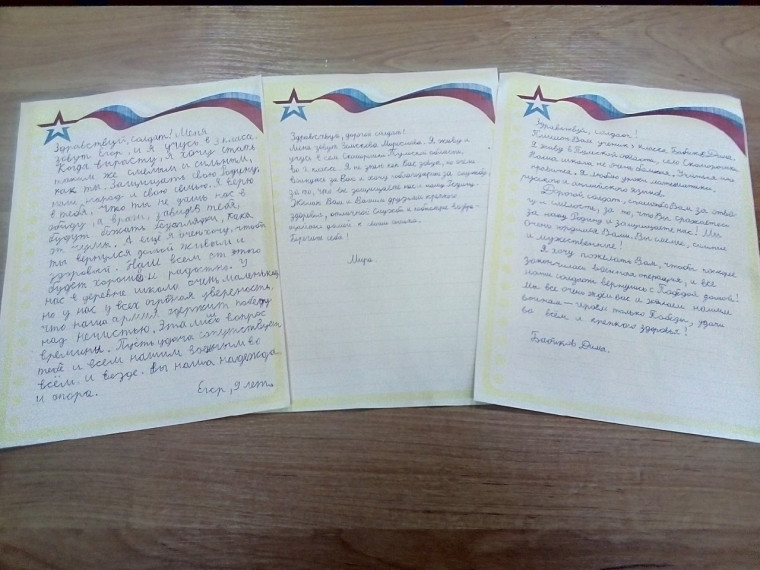 Здравствуй, солдат! Меня
зовут Егор, и я учусь в 3 классе.
Когда вырасту, я хочу стать
таким же смелым и сильным,
как ты. Защищать свою Родину,
наш народ и свою семью. Я верю
в тебя, что ты не дашь нас в
обиду, а враги, завидев тебя,
будут бежать без оглядки,
А ещё я очень хочу, чтобы
ты вернулся домой живым и
здоровым. Нам всем от этого
будет хорошо и радостно. У
нас в деревне школа очень маленькая,
но у нас у всех огромная уверенность,
что наша армия одержит победу
над нечистью. Это лишь вопрос
времени. Пусть удача сопутствует
тебе и всем нашим во
всём и везде. Вы наша надежда
и опора.
Егор, 9 лет.
Здравствуй, дорогой солдат!
Меня зовут Мирослава. Я живу и
учусь в селе области,
во 2 классе. Я не знаю как Вас зовут, но очень
волнуюсь за Вас и хочу поблагодарить за службу,
за то, что Вы защищаете нас и нашу Родину.
Желаю Вам и Вашим друзьям крепкого
здоровья, отличной службы и поскорее
домой к семье.
Берегите себя!
Мира.
Здравствуй, солдат!
Пишет Вам ученик 4 класса Бабиков Дима.
Я живу в области, село
Наша школа не очень большая. Учиться мне
нравится. Я люблю уроки математики,
русского и английского языков.
Дорогой солдат, спасибо Вам за отва-
гу и смелость, за то, что Вы сражаетесь
за нашу Родину и защищаете нас! Мы
очень гордимся Вами. Вы смелые, сильные
и мужественные!
Я хочу пожелать Вам, чтобы поскорее
закончилась военная операция, и все
наши солдаты вернулись с Победой домой!
Мы все очень ждём вас и желаем нашим
только Победы, удачи
во всём и крепкого здоровья!
Бабиков Дима.